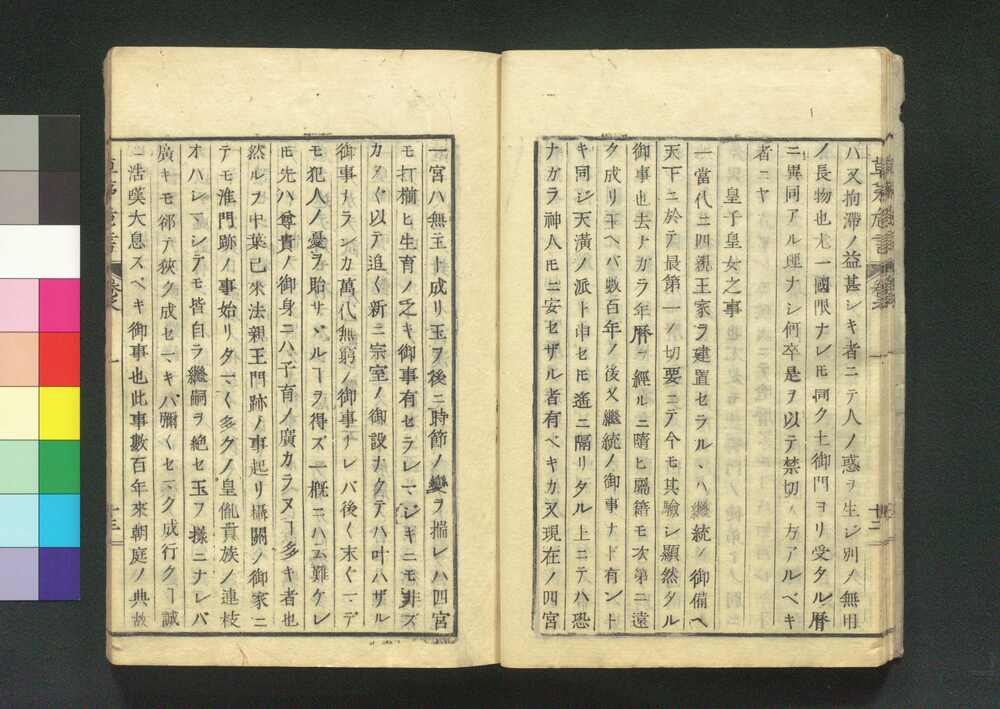 ハ又拘滞ノ益甚シキ者ニテ人ノ惑ヲ生ジ別〆無用
ノ長物也尤一國限ナレ𪜈同ク土御門ヨリ受タル暦
ニ異同アル理ナシ何卒是ヲ以テ禁切ノ方アルベキ
者ニヤ
皇子皇女之事
一當代ニ四親王家ヲ建置セラルヽハ繼統ノ御備ヘ
天下ニ於テ最第一ノ切要ニテ今モ其驗シ顯然タル
御事也去ナガラ年暦ヲ經ルニ隨ヒ屬籍モ次第ニ遠
ク成リ玉ヘバ數百年ノ後又繼統ノ御事ナド有ント
キ同ジ天潢ノ派ト申セ𪜈遙ニ隔リタル上ニテハ恐
ナガラ神人𪜈ニ安セザル者有ベキカ又現在ノ四宮
一宮ハ無主ト成リ玉ヲ後ニ時節ノ變ヲ揣レハ四宮
モ打揃ヒ生育ノ乏キ御事有セラレマジキニモ非ズ
カタ〱以テ追〱新ニ宗室ノ御設ナクテハ叶ハザル
御事ナランカ萬代無窮ノ御事ナレバ後〱末〱マデ
モ犯人ノ憂ヲ貽サヾルヿヲ得ズ一概ニハ云難ケレ
𪜈先ハ尊貴ノ御身ニハ子育ノ廣カラヌヿ多キ者也
然ルヲ中葉已來法親王門跡ノ事起リ攝關ノ御家ニ
テモ准門跡ノ事始リタマヘ多クノ皇胤貴族ノ連枝
オハシマシテモ皆自ラ繼嗣ヲ絶セ玉フ樣ニナレバ
廣キモ郤テ狹ク成セマキバ彌〱セマク成行クヿ誠
ニ浩嘆大息スベキ御事也此事數百年來朝庭ノ典故
草茅危言
十二
十三